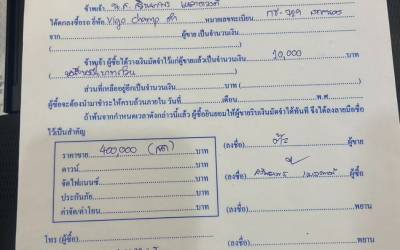 ข้าพเจ้า
ได้ตกลงซื้อรถ ยี่ห้อ Vigo Champ ดำ หมายเลขทะเบียน
จาก ผู้ขาย เป็นจำนวนเงิน บาท
ข้าพเจ้า ผู้ซื้อได้วางเงินมัดจำไว้แก่ผู้ขายแล้วเป็นจำนวนเงิน 10,000 บาท
ส่วนที่เหลืออยู่อีกเป็นจำนวนเงิน บาท
ผู้ซื้อจะต้องนำมาชำระให้ครบถ้วนภายใน วันที่ เดือน พ.ศ.
ถ้าพ้นจากกำหนดเวลาดังกล่าวนี้แล้ว ผู้ซื้อยินยอมให้ผู้ขายริบเงินมัดจำได้ทันที จึงได้ลงลายมือชื่อ
ไว้เป็นสำคัญ
ราคาขาย 400,000 (สด) บาท
ดาวน์ บาท
จัดไฟแนนซ์ บาท
ประกันภัย บาท
ค่าจัด/ค่าโอน บาท
(ลงชื่อ) ผู้ขาย
(ลงชื่อ) ผู้ซื้อ
(ลงชื่อ) พยาน
(ลงชื่อ) พยาน
โทร (ผู้ซื้อ)